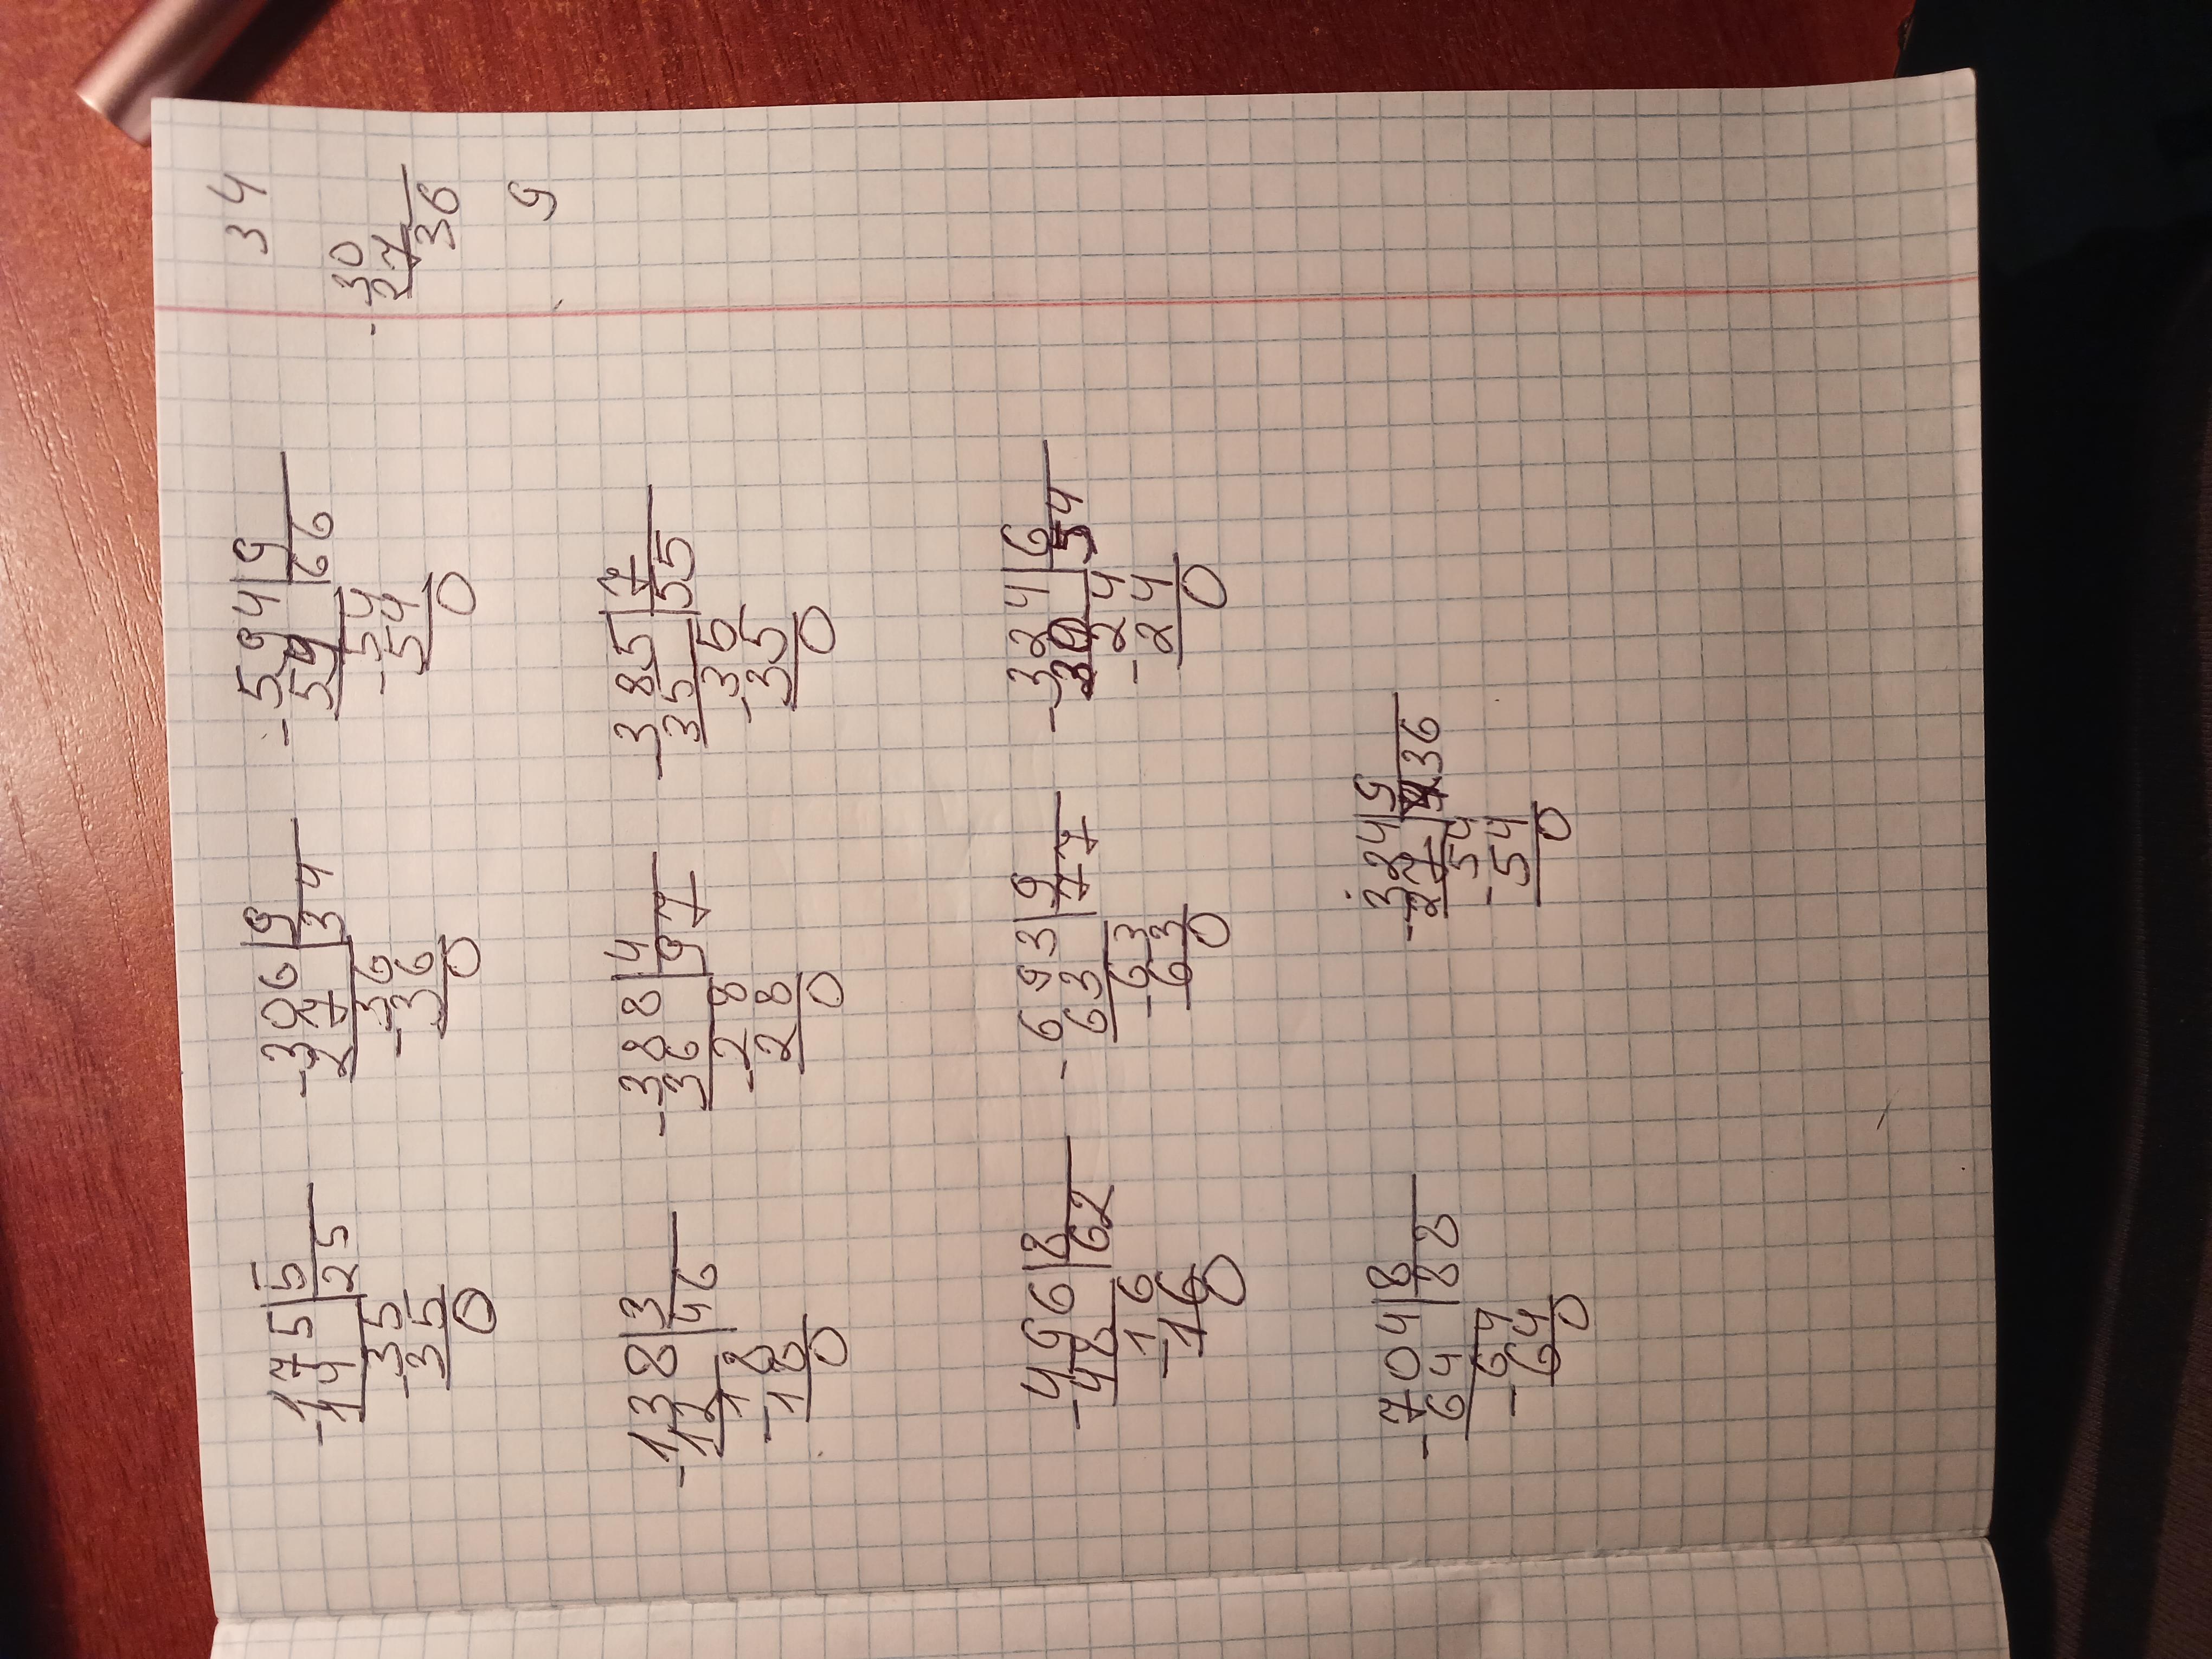 -175|5 -306|9 -594|9 34
14|25 27|34 54|66 -30
-35 -36 -54 27
35 36 54 36
0 0 0 9
-138|3 -388|4 -385|7
12|46 36|97 35|55
-18 -28 -35
18 28 35
0 0 0
-496|8 -693|9 -324|6
48|62 63|77 30|54
-16 -63 -24
16 63 24
0 0 0
-704|8 -324|9
64|88 27|36
-64 -54
64 54
0 0